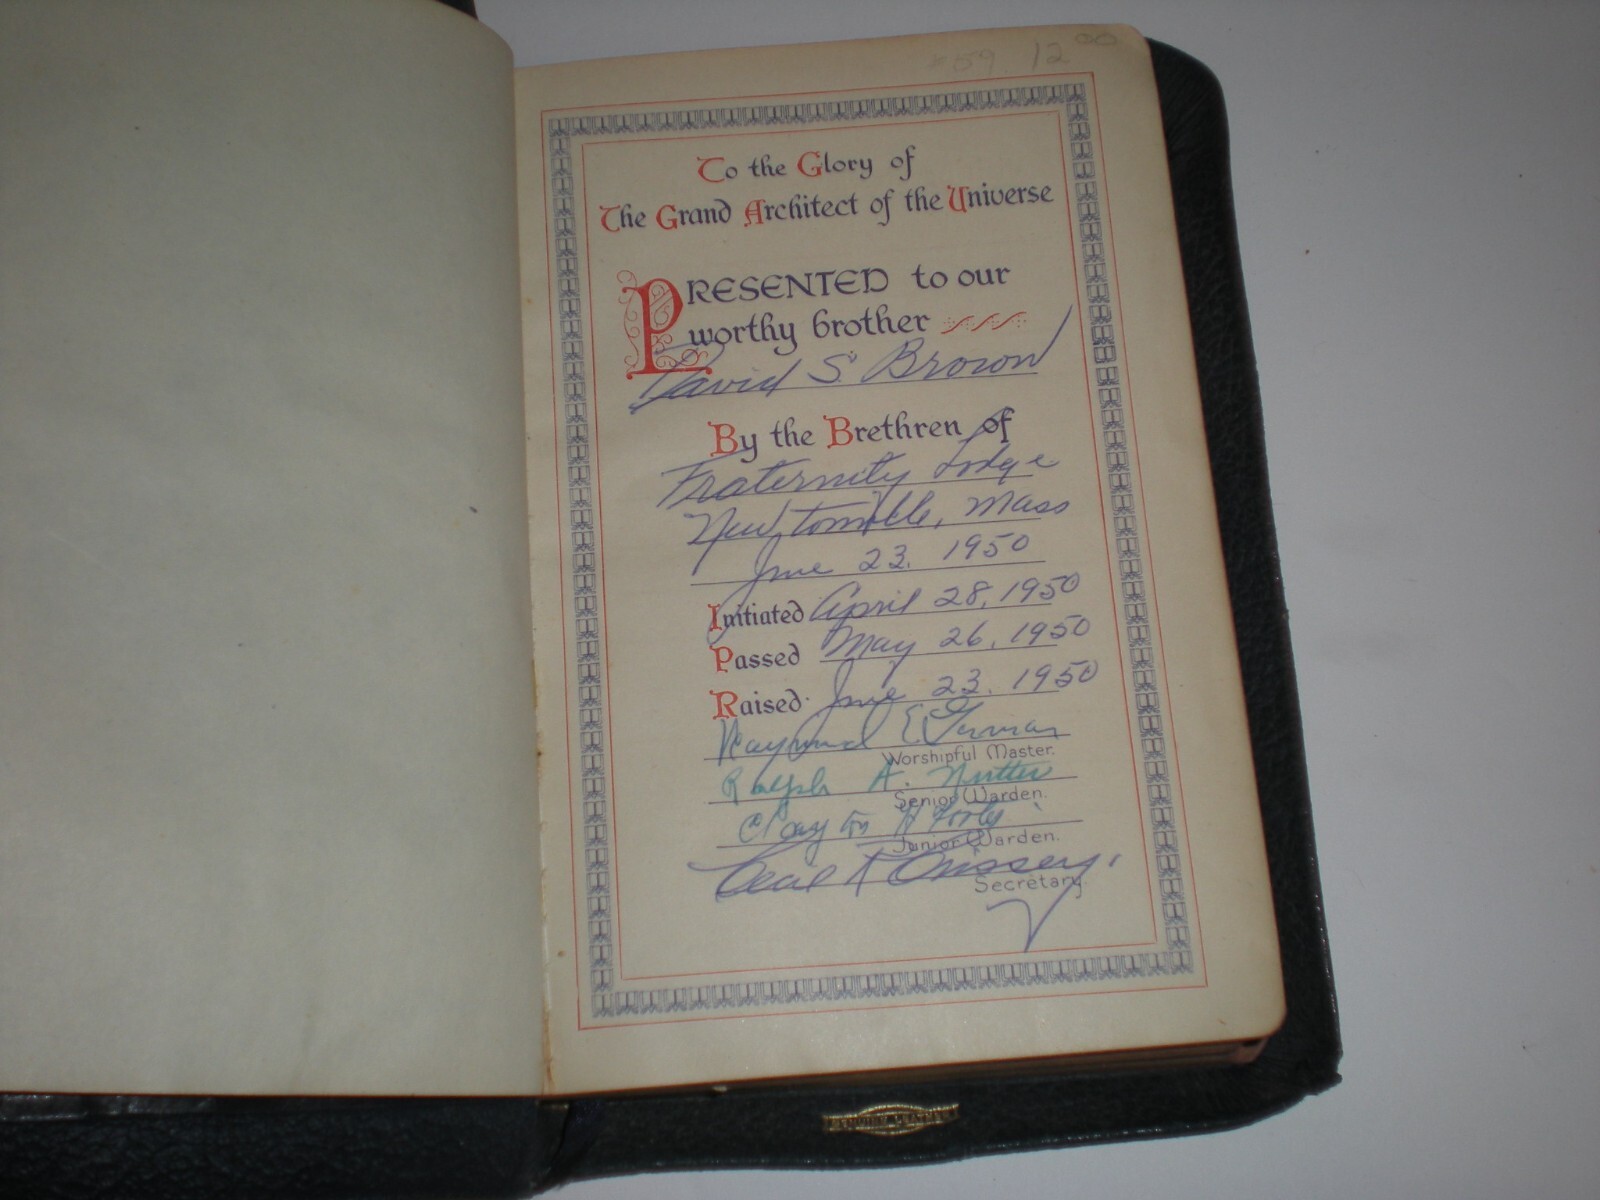 12 00
To the Glory of
The Grand Architect of the Universe
PRESENTED to our
worthy brother
David S. Brown
By the Brethren of
Fraternity Lodge
Newtonville, Mass
June 23, 1950
Initiated April 28, 1950
Passed May 26, 1950
Raised June 23, 1950
Raymond E
Worshipful Master.
Ralph A. Nutter
Senior Warden.
Clayton H
Junior Warden.
Secretary.
GENUINE LEATHER